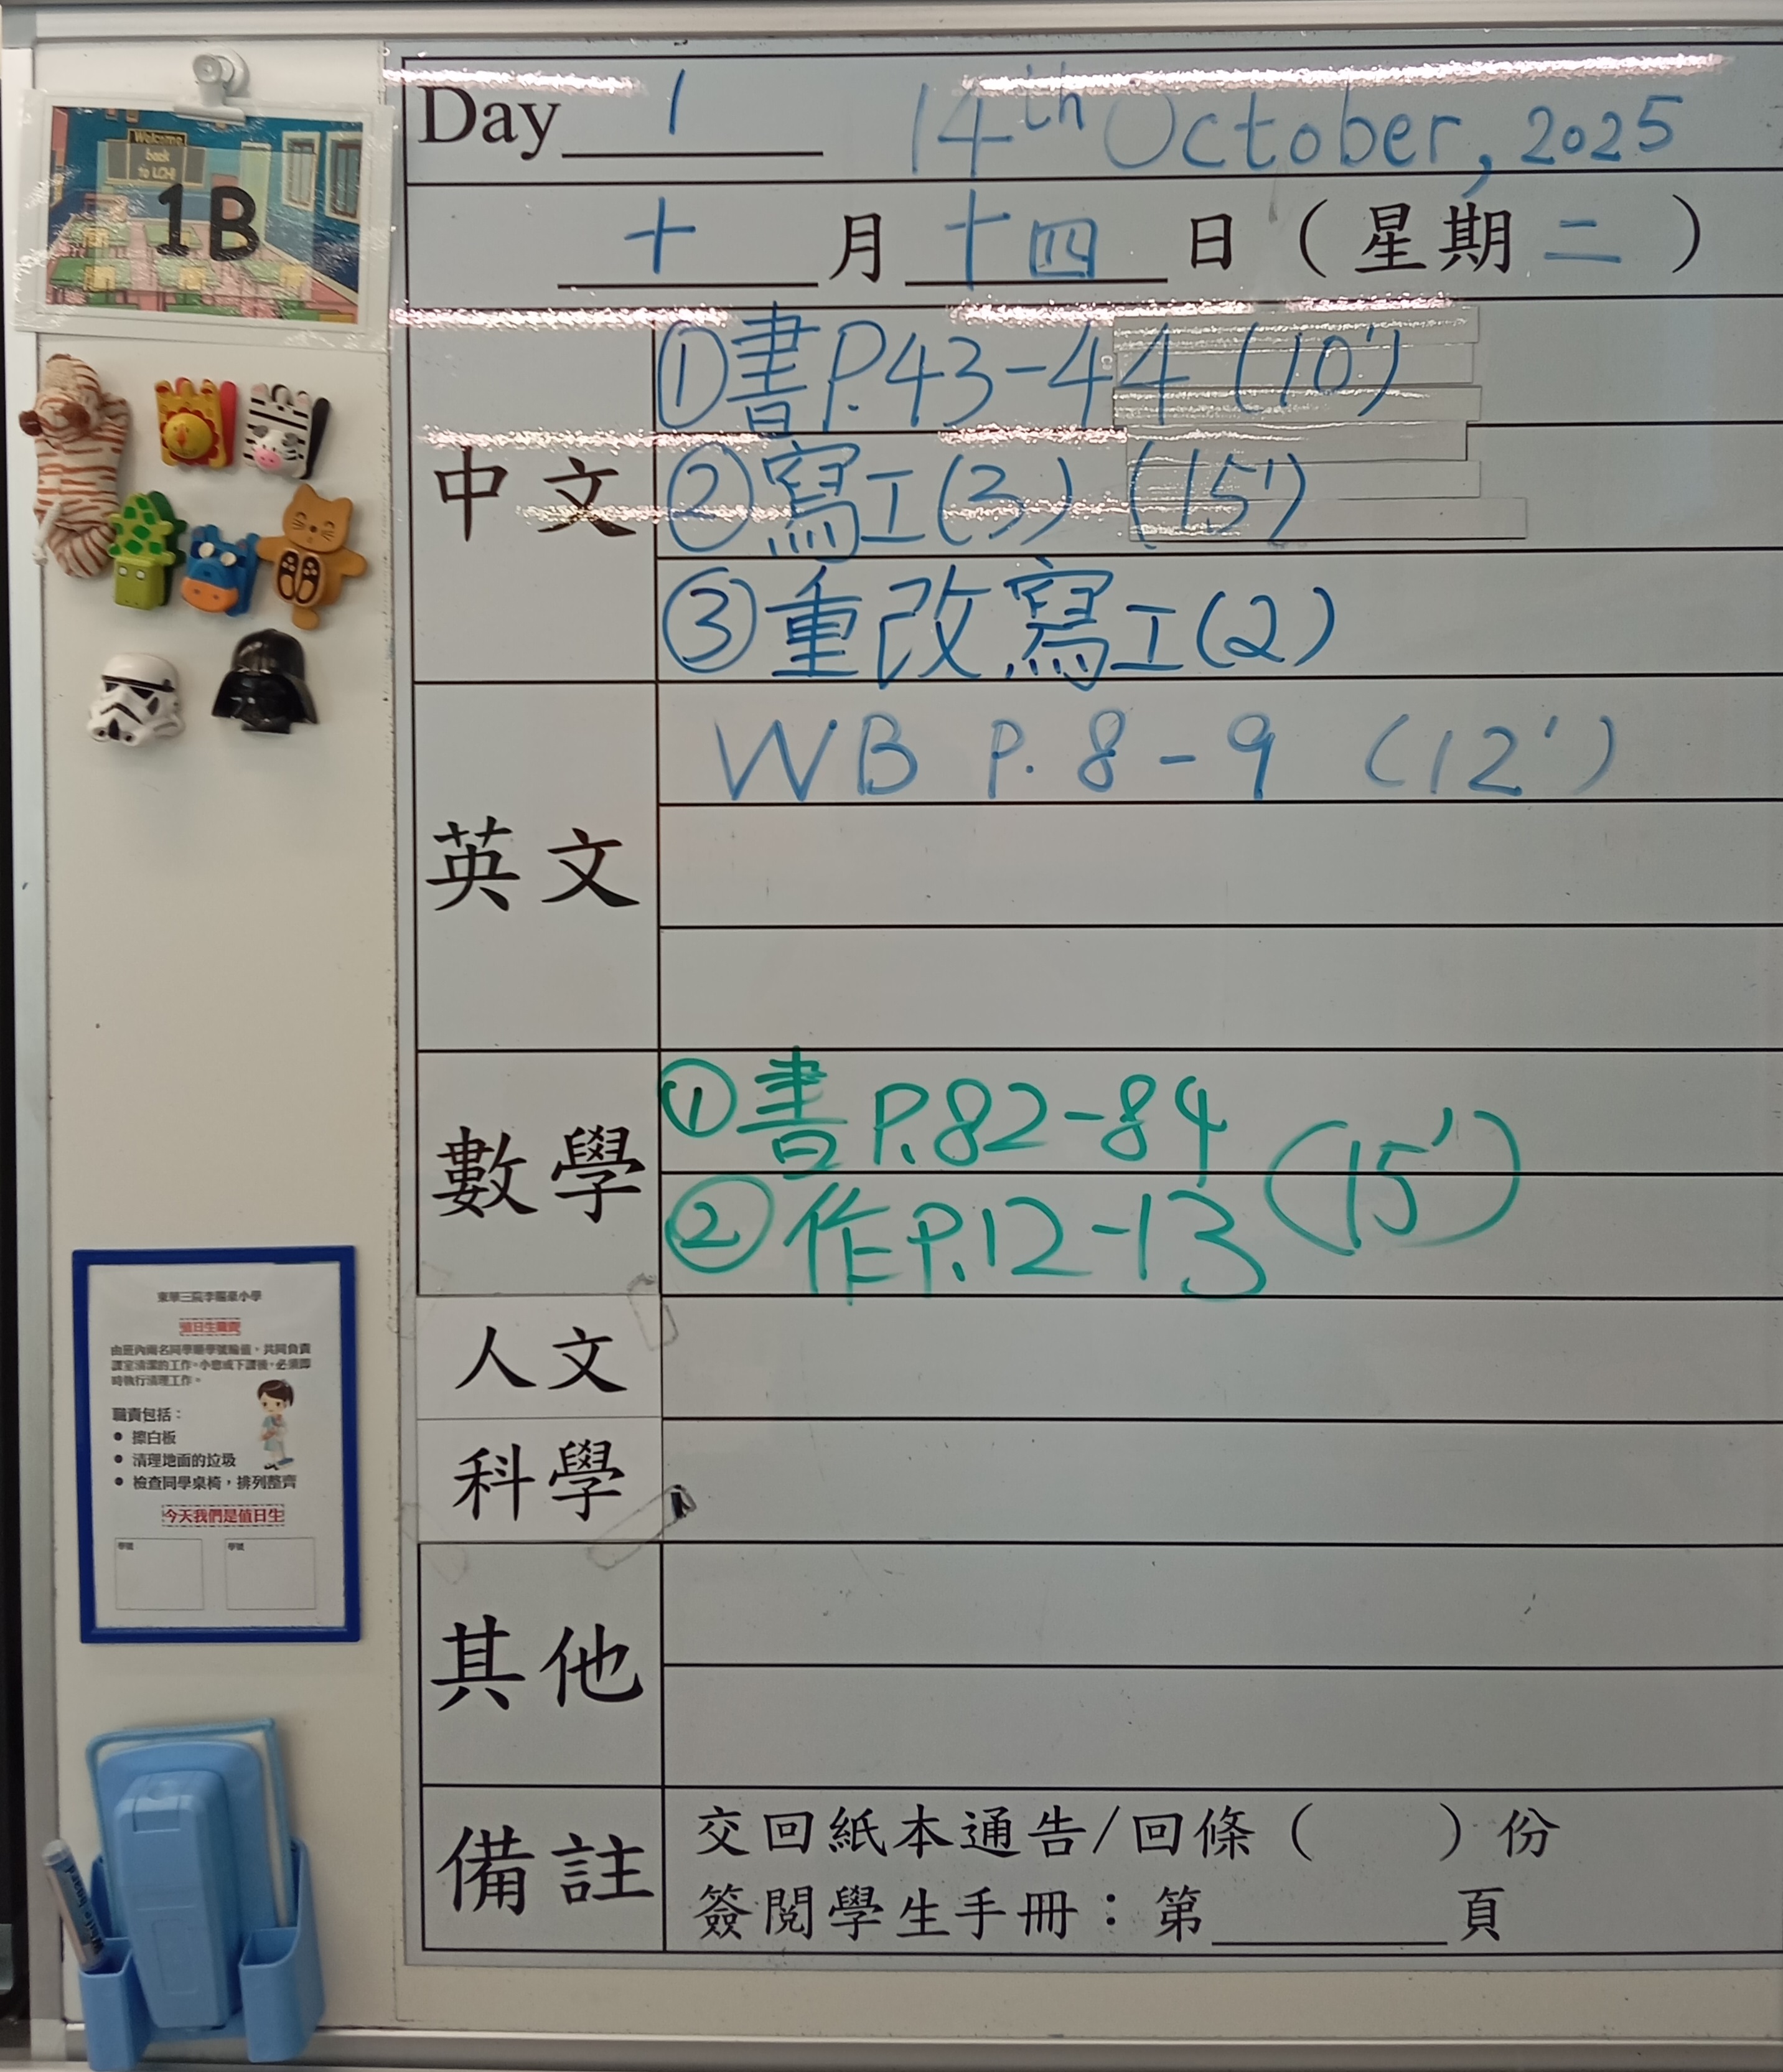 Welcome
back
to LCH!
1B
Day 1 14th October, 2025
十 月 十四 日 ( 星期 二 )
中文
①書P.43-44 (10')
②寫工(3) (15')
③重改寫工(2)
英文
WB P. 8-9 (12')
數學
①書P.82-84
②作P.12-13 (15')
人文
科學
其他
備註
交回紙本通告/回條 ( ) 份
簽閱學生手冊：第____頁
值日生職責
由班內兩名同學順學號輪值，共同負責
課室清潔的工作。小息或下課後，必須即
時執行清理工作。
職責包括：
• 擦白板
• 清理地面的垃圾
• 檢查同學桌椅，排列整齊
今天我們是值日生
學號 學號